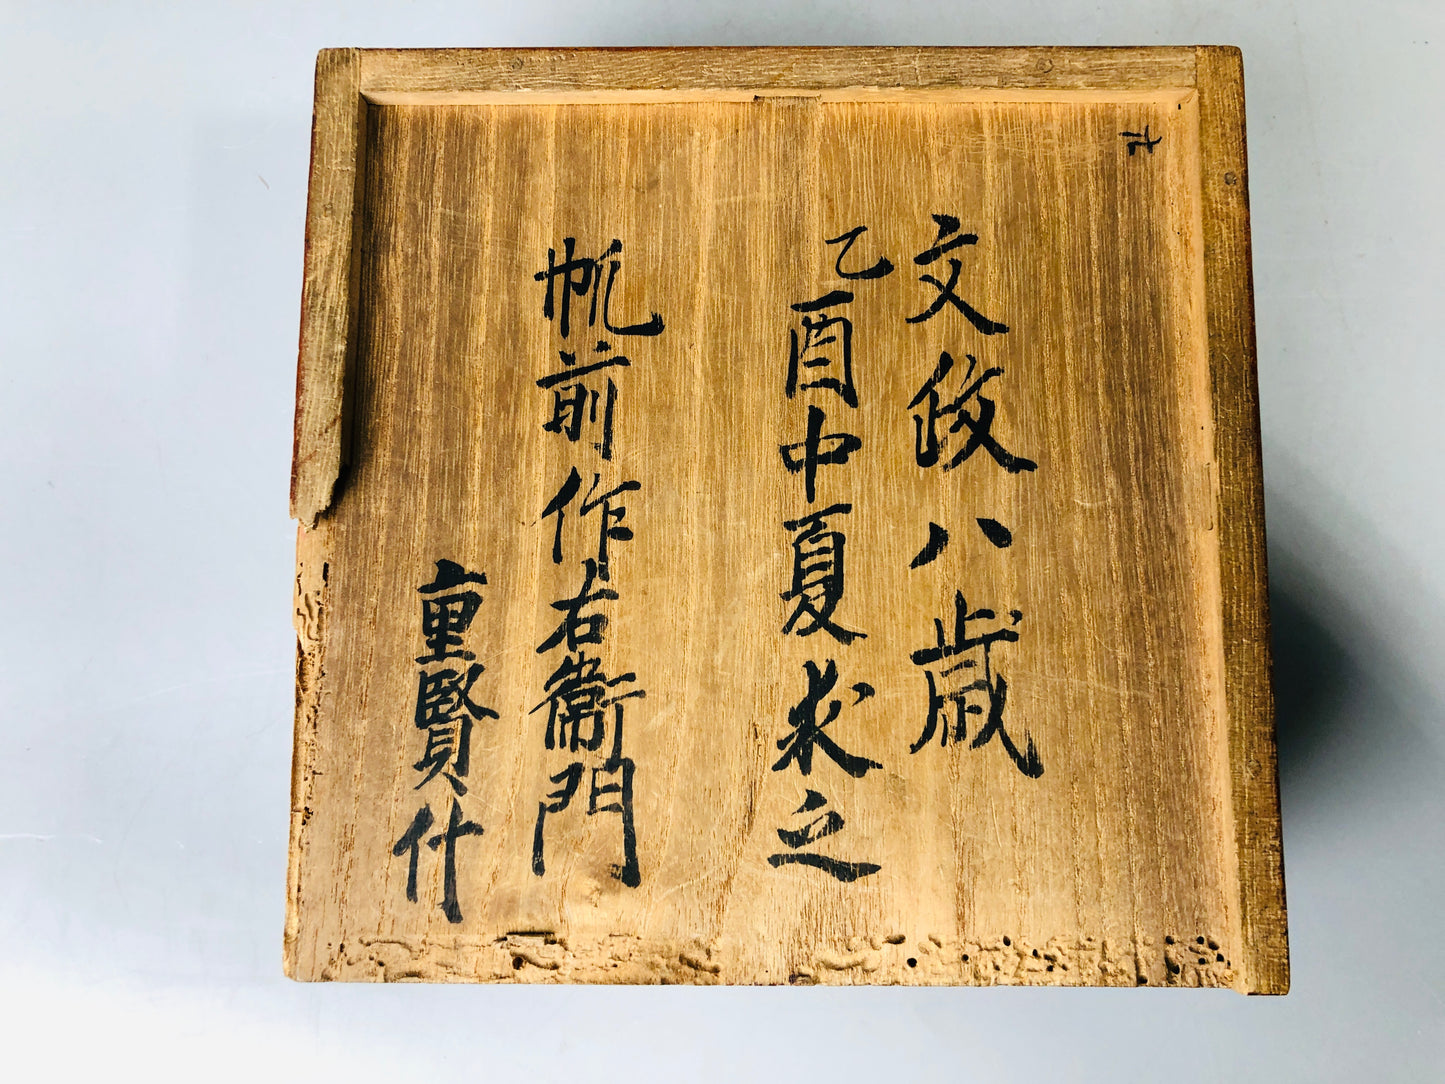 文政八歳
乙酉中夏求之
帆前作右衛門
重賢什